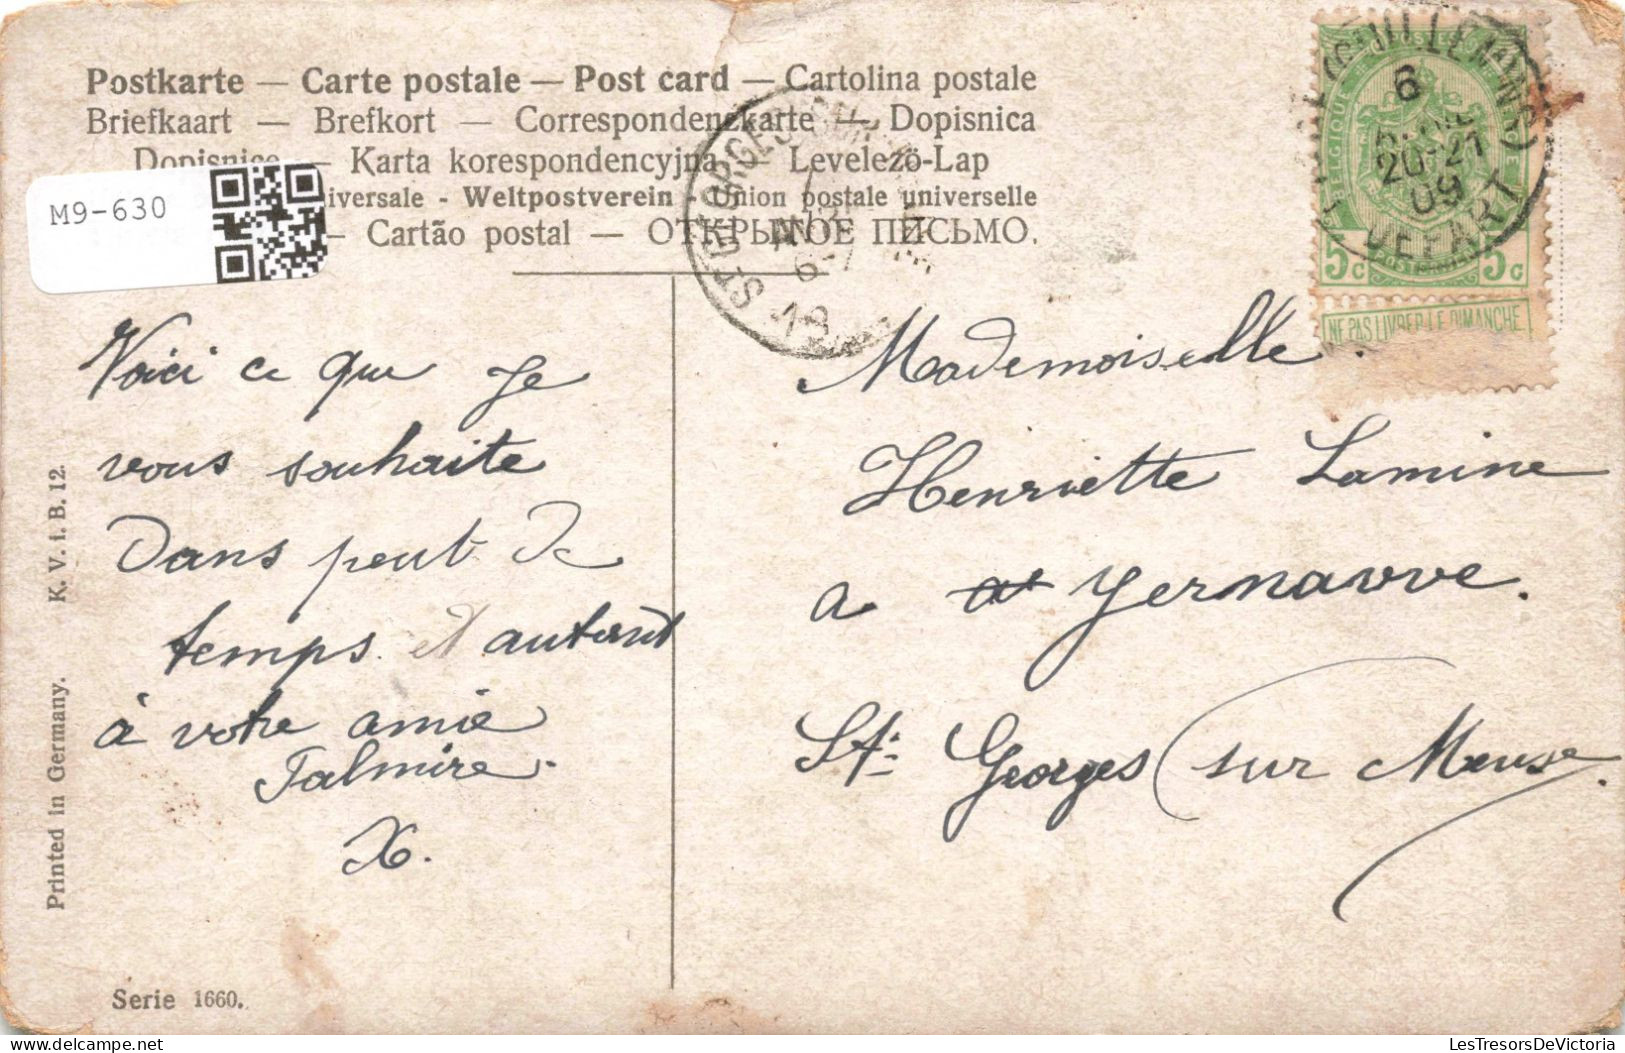 Postkarte — Carte postale — Post card — Cartolina postale
Briefkaart — Brefkort — Correspondenzkarte — Dopisnica
Dopisnice — Karta korespondencyjna — Levelező-Lap
iversale - Weltpostverein - Union postale universelle
— Cartão postal — ОТКРЫТОЕ ПИСЬМО.
M9-630
ST GEORGES
6-7
(GUILLEMINS)
6
20-21
09
DEPART
BELGIQUE
5c 5c
NE PAS LIVRER LE DIMANCHE
Voici ce que Je
vous souhaite
Dans peut De
temps et autant
à votre amie
Palmire.
X.
Mademoiselle
Henriette Lamine
a Yernawve.
St. Georges (sur Meuse.
Printed in Germany. K. V. i. B. 12.
Serie 1660.
LesTresorsDeVictoria